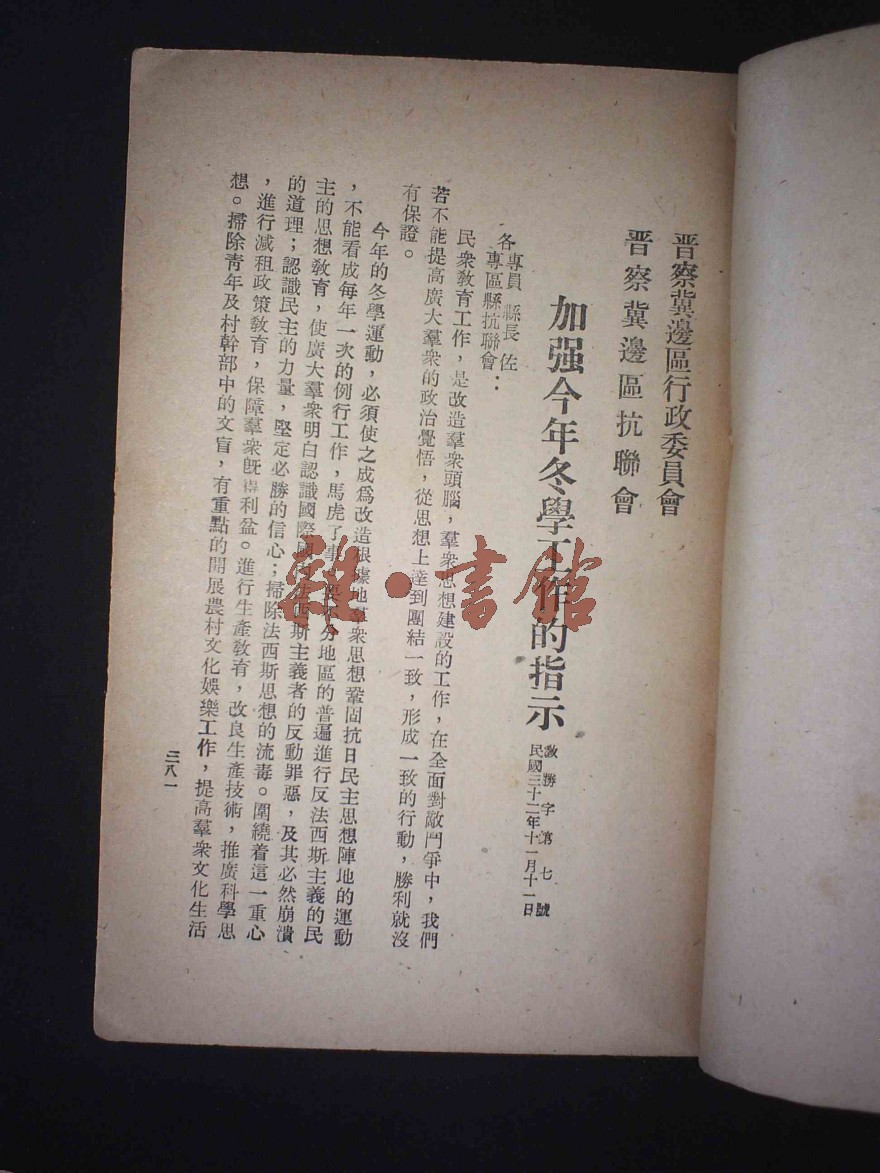 晋察冀邊區行政委員會
晋察冀邊區抗聯會
加强今年冬學工作的指示
教勝字第七號
民國三十二年十一月十一日
各專員 縣長 佐
專區縣抗聯會：
民衆敎育工作，是改造羣衆頭腦，羣衆思想建設的工作，在全面對敵鬥爭中，我們
若不能提高廣大羣衆的政治覺悟，從思想上達到團結一致，形成一致的行動，勝利就沒
有保證。
今年的冬學運動，必須使之成爲改造根據地羣衆思想鞏固抗日民主思想陣地的運動
，不能看成每年一次的例行工作，馬虎了事。要不分地區的普遍進行反法西斯主義的民
主的思想敎育，使廣大羣衆明白認識國際國內法西斯主義者的反動罪惡，及其必然崩潰
的道理；認識民主的力量，堅定必勝的信心；掃除法西斯思想的流毒。圍繞着這一重心
，進行减租政策敎育，保障羣衆旣得利益。進行生產敎育，改良生產技術，推廣科學思
想。掃除靑年及村幹部中的文盲，有重點的開展農村文化娛樂工作，提高羣衆文化生活
三八一
雜·書館